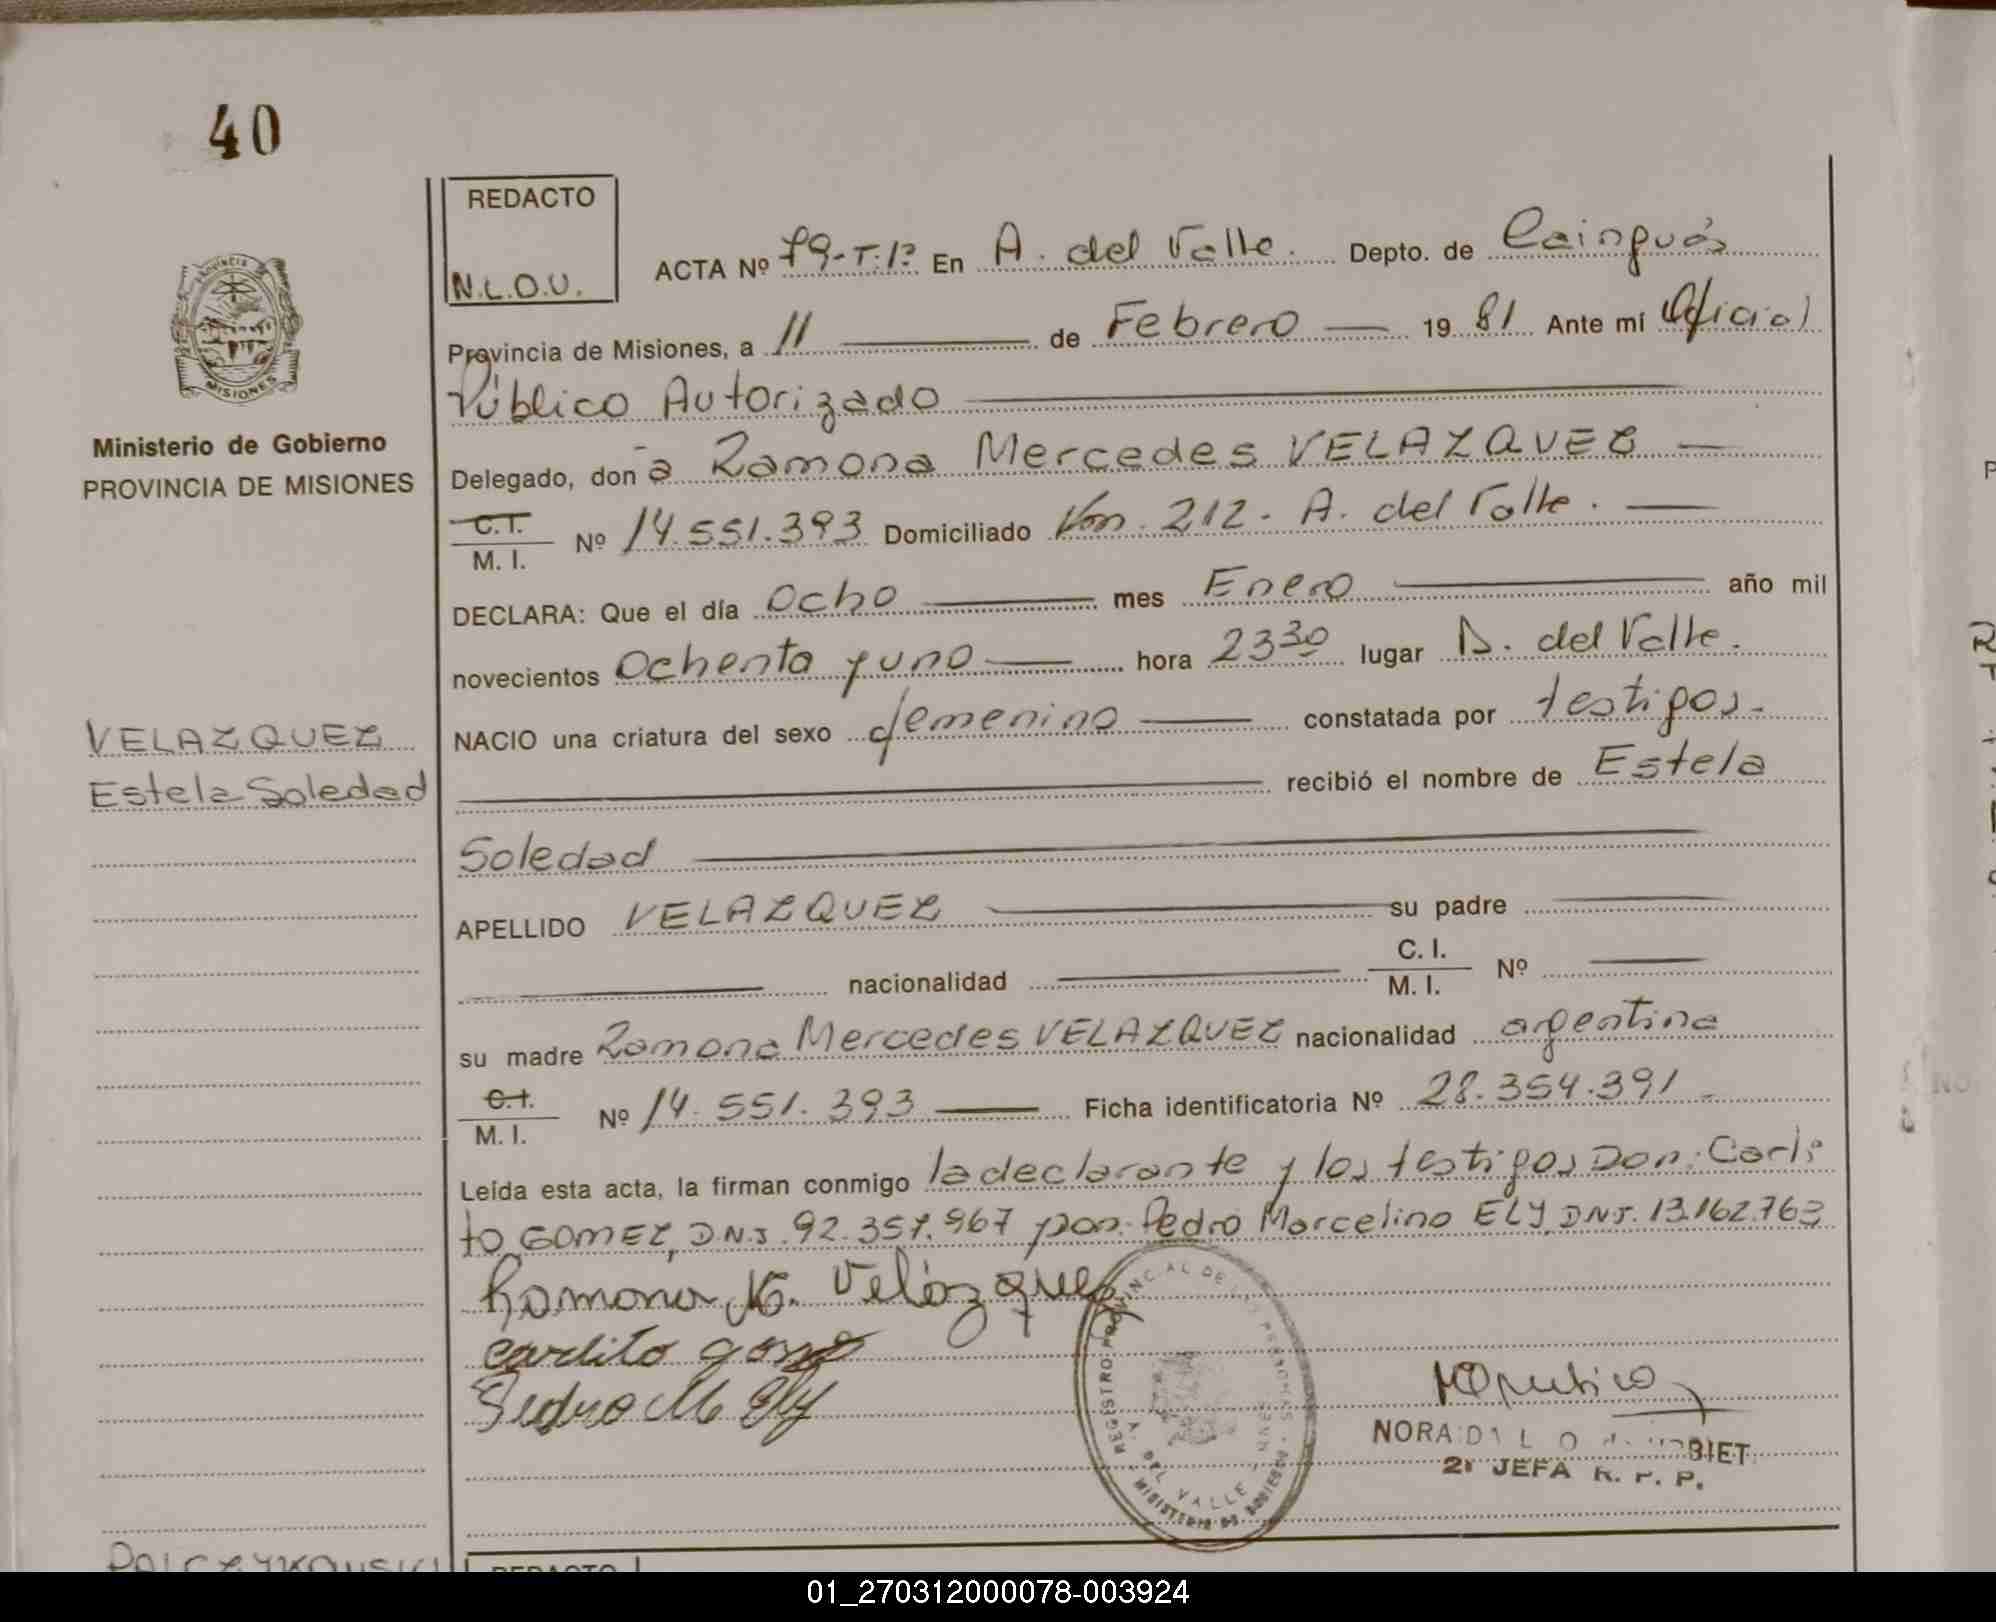 40
REDACTO
N.L.D.U.
ACTA Nº 79-T.1º En A. del Valle. Depto. de Cainguás
Provincia de Misiones, a 11 de Febrero 19 81 Ante mí Oficial
Público Autorizado
Delegado, don a Ramona Mercedes VELAZQUEZ
C.I. M. I. Nº 14.551.393 Domiciliado Km. 212. A. del Valle.
DECLARA: Que el día Ocho mes Enero año mil
novecientos Ochenta y uno hora 23 30 lugar A. del Valle.
NACIO una criatura del sexo femenino constatada por testigos.
recibió el nombre de Estela
Soledad
APELLIDO VELAZQUEZ su padre
nacionalidad C. I. M. I. Nº
su madre Ramona Mercedes VELAZQUEZ nacionalidad argentina
C.I. M. I. Nº 14.551.393 Ficha identificatoria Nº 28.354.391
Leída esta acta, la firman conmigo la declarante y los testigos Don: Carli
to GOMEZ, D.N.I. 92.357.967 y don: Pedro Marcelino ELY, D.N.I. 13.162.763
Ramona M. Velázquez
carlito gomez
Pedro M Ely
REGISTRO PROVINCIAL DE LAS PERSONAS
A. DEL VALLE
MINISTERIO DE GOBIERNO
2ª JEFA R. P. P.
PROVINCIA DE MISIONES
Ministerio de Gobierno
PROVINCIA DE MISIONES
VELAZQUEZ
Estela Soledad
REDACTO
01_270312000078-003924